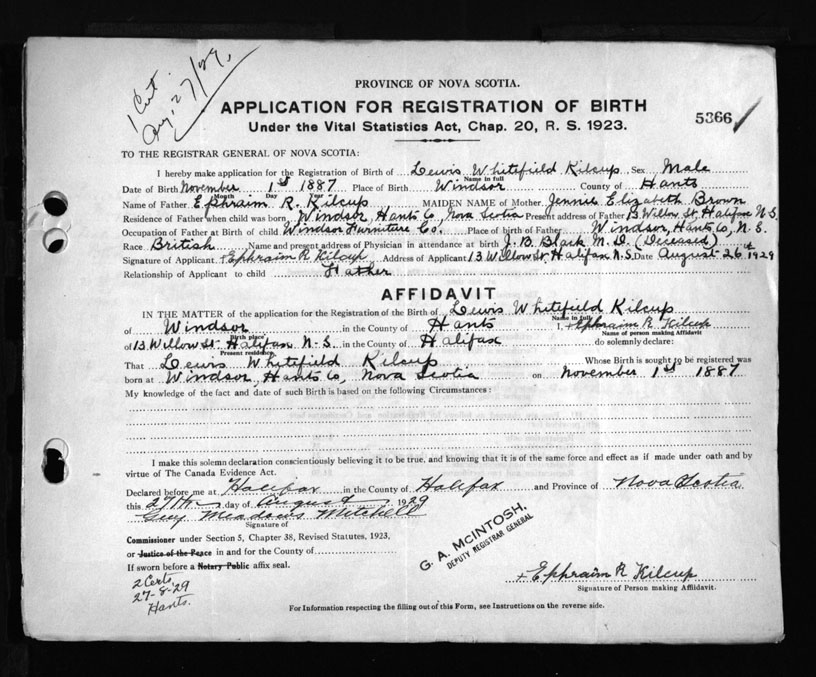 1 Cert.
Aug. 27/29.
PROVINCE OF NOVA SCOTIA.
APPLICATION FOR REGISTRATION OF BIRTH
5366
Under the Vital Statistics Act, Chap. 20, R. S. 1923.
TO THE REGISTRAR GENERAL OF NOVA SCOTIA:
I hereby make application for the Registration of Birth of Lewis Whitefield Kilcup Sex Male
Name in full
Date of Birth November 1st 1887 Place of Birth Windsor County of Hants
Month Day Year
Name of Father Ephraim R. Kilcup MAIDEN NAME of Mother Jennie Elizabeth Brown
Residence of Father when child was born, Windsor, Hants Co, Nova Scotia Present address of Father 13 Willow St, Halifax N.S.
Occupation of Father at Birth of child Windsor Furniture Co. Place of birth of Father Windsor, Hants Co, N.S.
Race British Name and present address of Physician in attendance at birth J. B. Black M.D. (Deceased)
Signature of Applicant +Ephraim R Kilcup Address of Applicant 13 Willow St. Halifax N.S. Date August 26th 1929
Relationship of Applicant to child Father
AFFIDAVIT
IN THE MATTER of the application for the Registration of the Birth of Lewis Whitefield Kilcup
Name in full
of Windsor in the County of Hants I, +Ephraim R Kilcup
Birth place Name of person making Affidavit
of 13 Willow St Halifax N-S. in the County of Halifax do solemnly declare:
Present residence
That Lewis Whitefield Kilcup Whose Birth is sought to be registered was
born at Windsor, Hants Co, Nova Scotia on November 1st 1887
My knowledge of the fact and date of such Birth is based on the following Circumstances:
I make this solemn declaration conscientiously believing it to be true, and knowing that it is of the same force and effect as if made under oath and by
virtue of The Canada Evidence Act.
Declared before me at Halifax in the County of Halifax and Province of Nova Scotia
this 27th day of August 1929
Guy Meadows Mitchell
Signature of
Commissioner under Section 5, Chapter 38, Revised Statutes, 1923,
or Justice of the Peace in and for the County of
If sworn before a Notary Public affix seal.
G. A. McINTOSH,
DEPUTY REGISTRAR GENERAL
2 Certs.
27-8-29
Hants.
+Ephraim R Kilcup
Signature of Person making Affidavit.
For Information respecting the filling out of this Form, see Instructions on the reverse side.